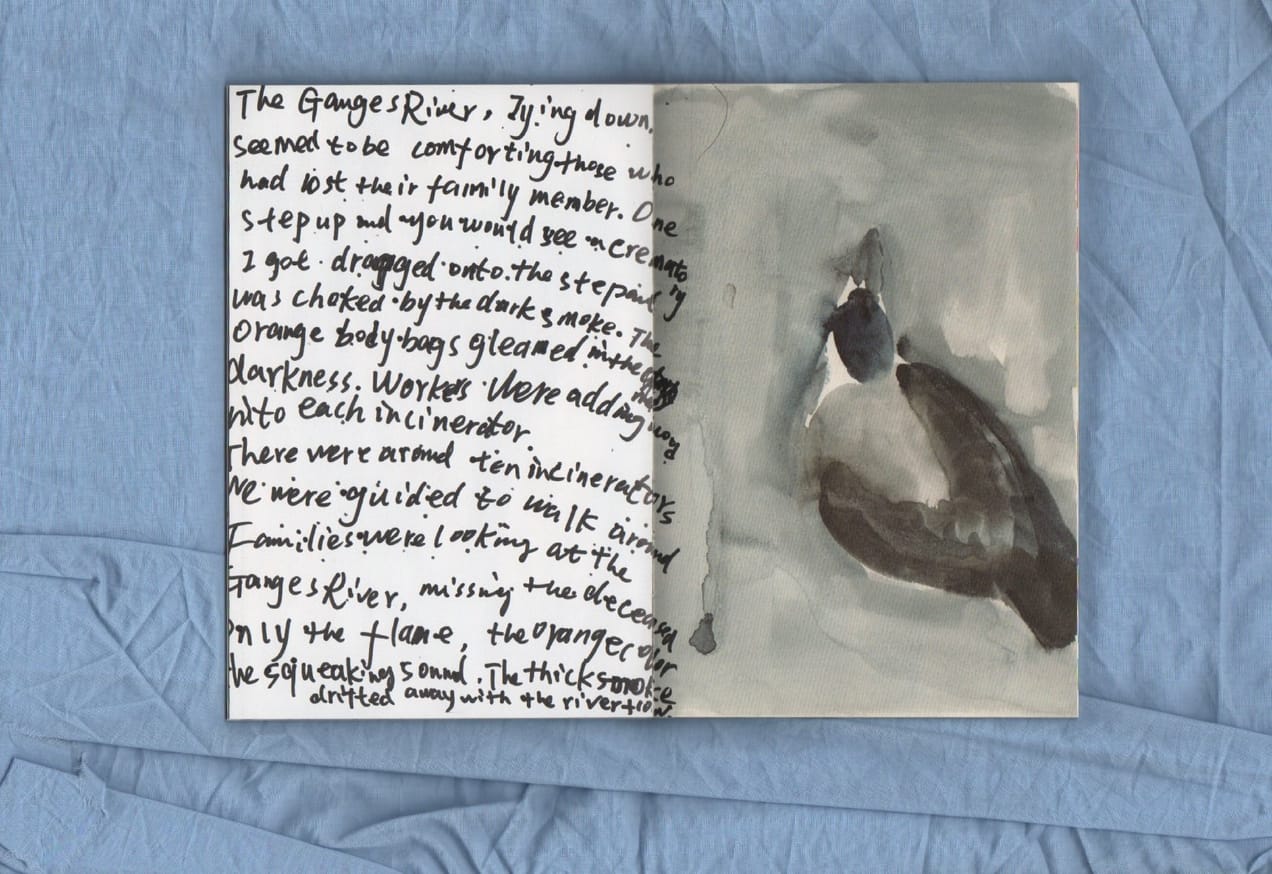 The Ganges River, lying down,
seemed to be comforting those who
had lost their family member. One
step up and you would see a crematory
I got dragged onto the step and
was choked by the dark smoke. The
orange body bags gleamed in the
darkness. Workers were adding wood
into each incinerator.
There were around ten incinerators
We were guided to walk around
Families were looking at the
Ganges River, missing the deceased
only the flame, the orange color
the squeaking sound. The thick smoke
drifted away with the river flow.